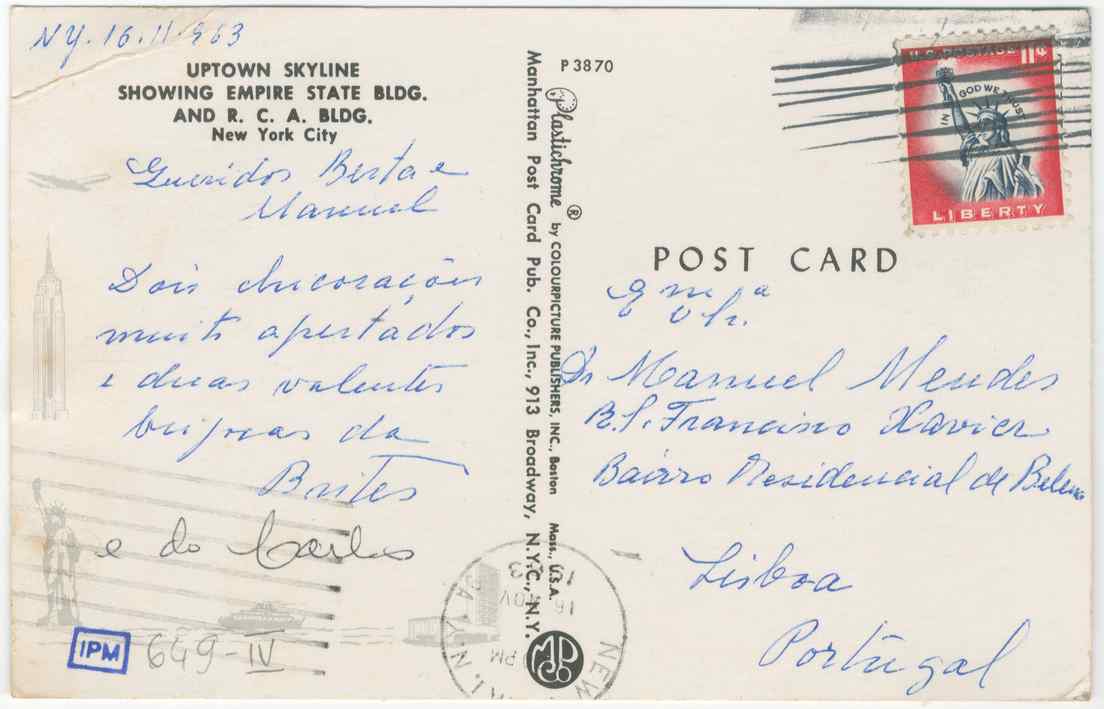 NY. 16.11.963
UPTOWN SKYLINE
SHOWING EMPIRE STATE BLDG.
AND R. C. A. BLDG.
New York City
Queridos Berta e
Manuel
Dois chicorações
muito apertados
e duas valentes
beijocas da
Brites
e do Carlos
IPM
649-IV
Manhattan Post Card Pub. Co., Inc., 913 Broadway, N.Y.C., N.Y.
Plastichrome ® by COLOURPICTURE PUBLISHERS, INC., Boston Mass., U.S.A.
P 3870
U.S. POSTAGE 11¢
IN GOD WE TRUST
LIBERTY
POST CARD
Exmº
Sr.
Dr Manuel Mendes
R. S. Francisco Xavier
Bairro Residencial de Belem
Lisboa
Portugal
NEW
N.Y.
PM
16 NOV